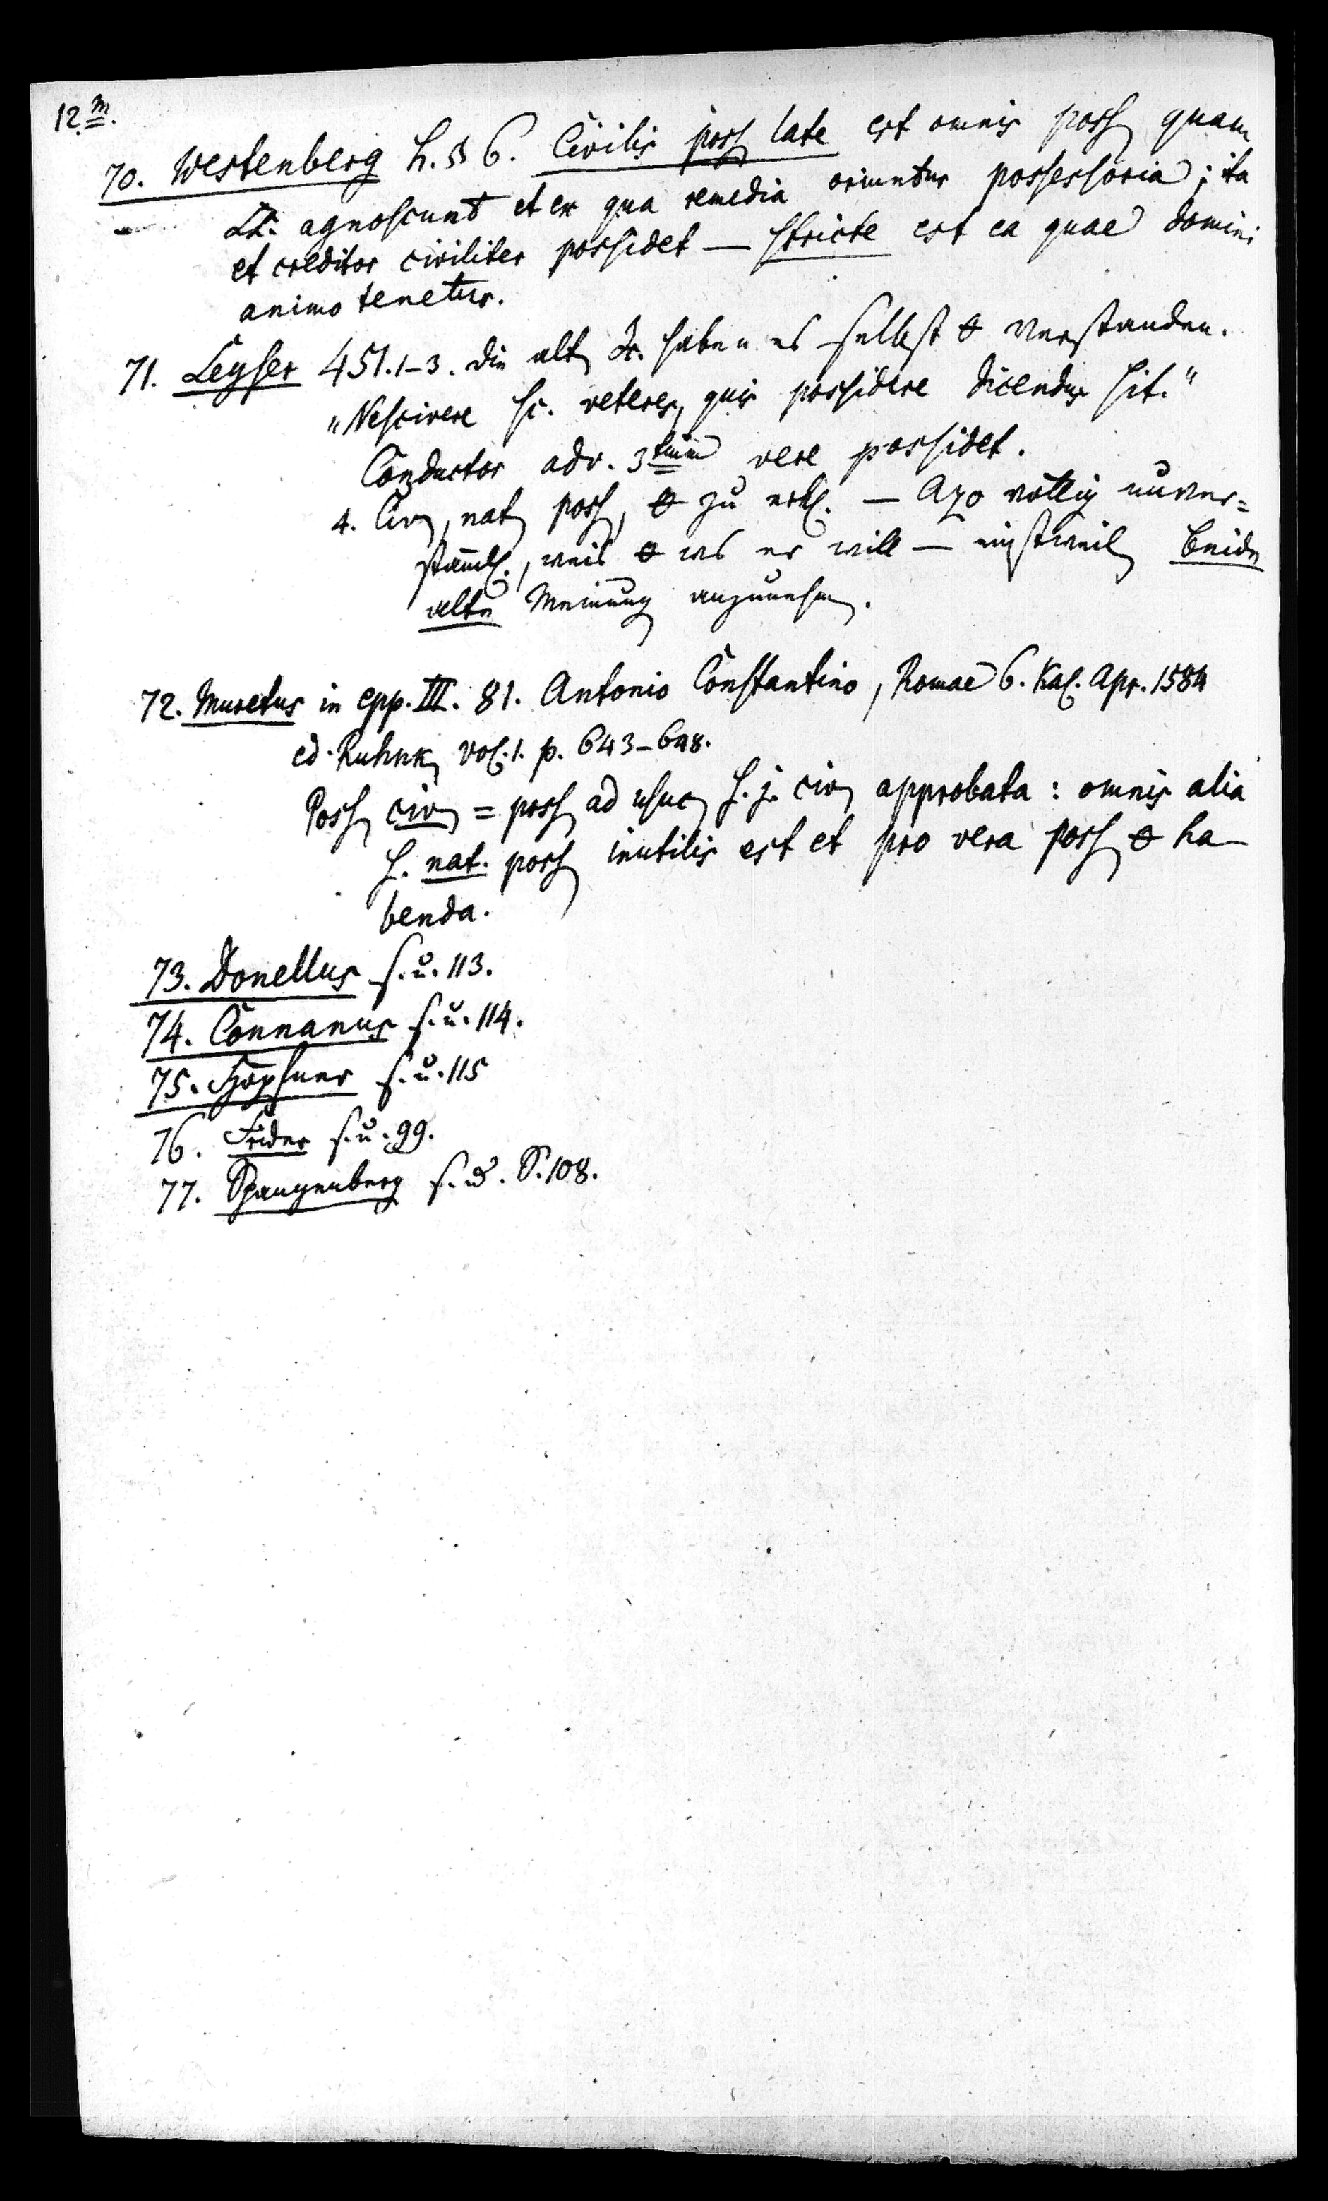 12.m.
70. Westenberg h. §§ 6. Civilis poss late est omnis poss quam
LL. agnoscunt et ex qua remedia oriuntur possessoria; ita
et creditor civiliter possidet — stricte est ea quae domini
animo tenetur.
71. Leyser 451.1-3. die alt Jr. haben es selbst ɵ verstanden.
„Nescivere sc. veteres, quis possidere dicendus sit."
Conductor adv. 3tium vere possidet.
4. Civ, nat poss, ɵ zu erkl. — Azo völlig unver=
ständl., weis ɵ was er will — einstweil beide
alte Meinung anzunehm.
72. Muretus in epp. III. 81. Antonio Constantino, Romae 6. Kal. Apr. 1584
ed. Ruhnk vol. 1. p. 643-648.
Poss civ = poss ad usuc j. civ approbata: omnis alia
nat. poss inutilis est et pro vera poss ɵ ha-
benda.
73. Donellus s. u. 113.
74. Connanus s. u. 114.
75. Höpfner s. u. 115
76. Frider s. u. 99.
77. Spangenberg s. u. S. 108.